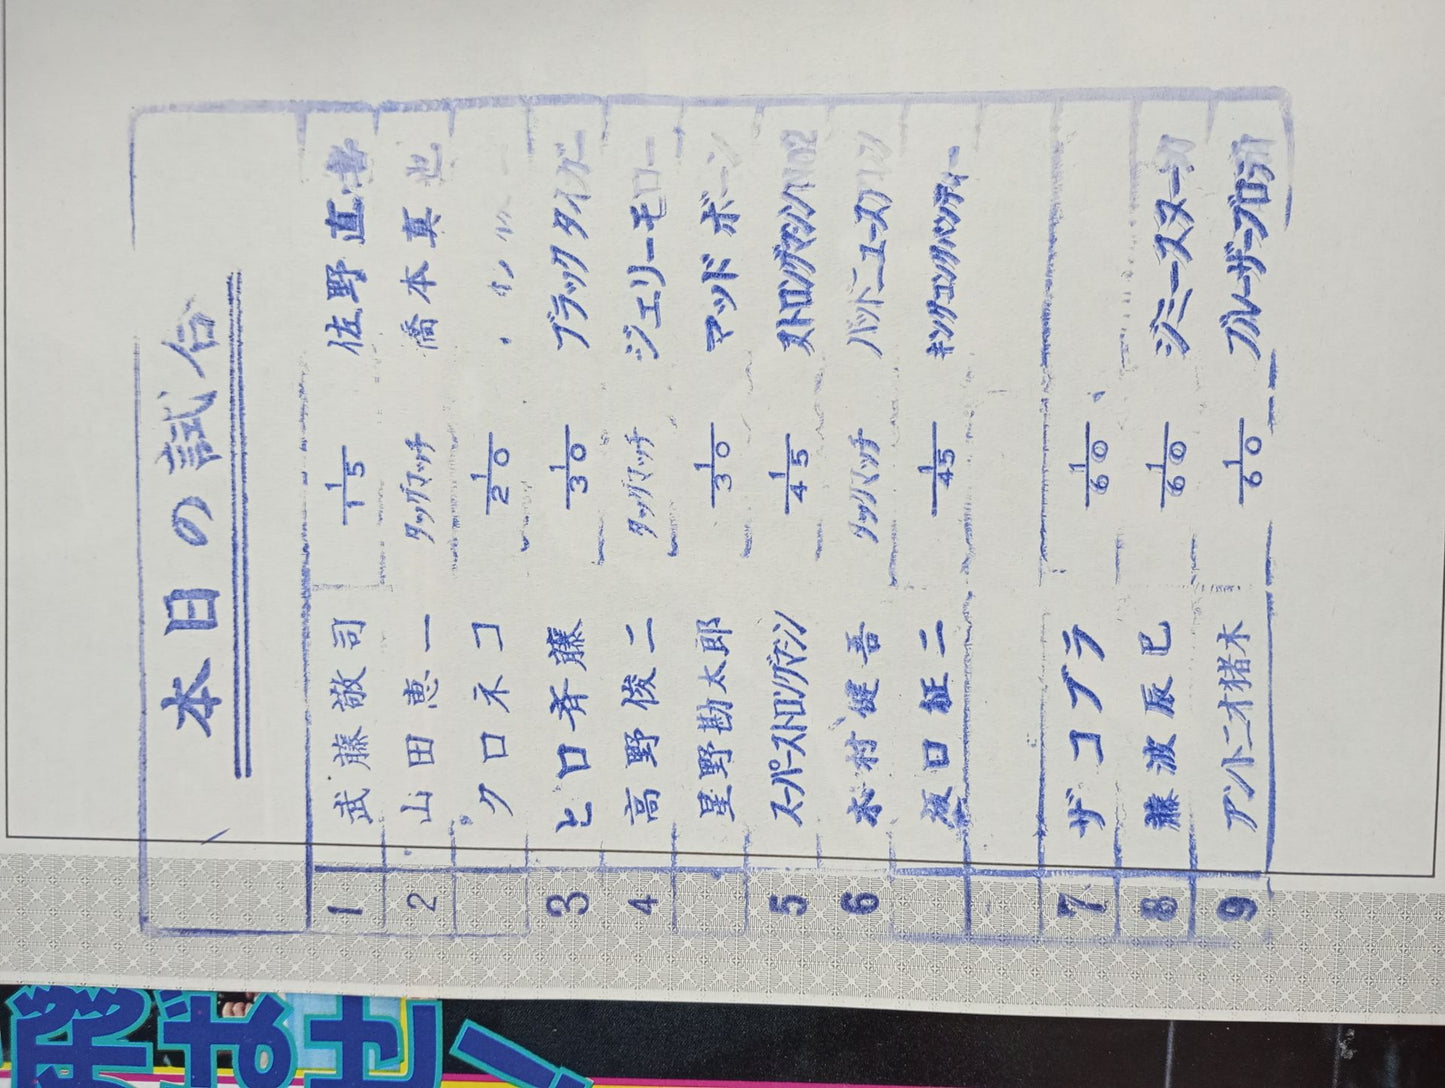 本日の試合
1 武藤敬司 1/15 佐野直喜
2 山田恵一 タッグマッチ 橋本真也
クロネコ 1/20
3 ヒロ斉藤 1/30 ブラックタイガー
4 高野俊二 タッグマッチ ジェリーモロー
星野勘太郎 1/30 マッドボーン
5 スーパーストロングマシン 1/45 ストロングマシンNO2
6 木村健吾 タッグマッチ バッドニュースアレン
坂口征二 1/45 キングコングバンディー
7 ザコブラ 1/60
8 藤波辰巳 1/60 ジミースヌーカ
9 アントニオ猪木 1/60 ブルーザーブロディ
飛
ませ!